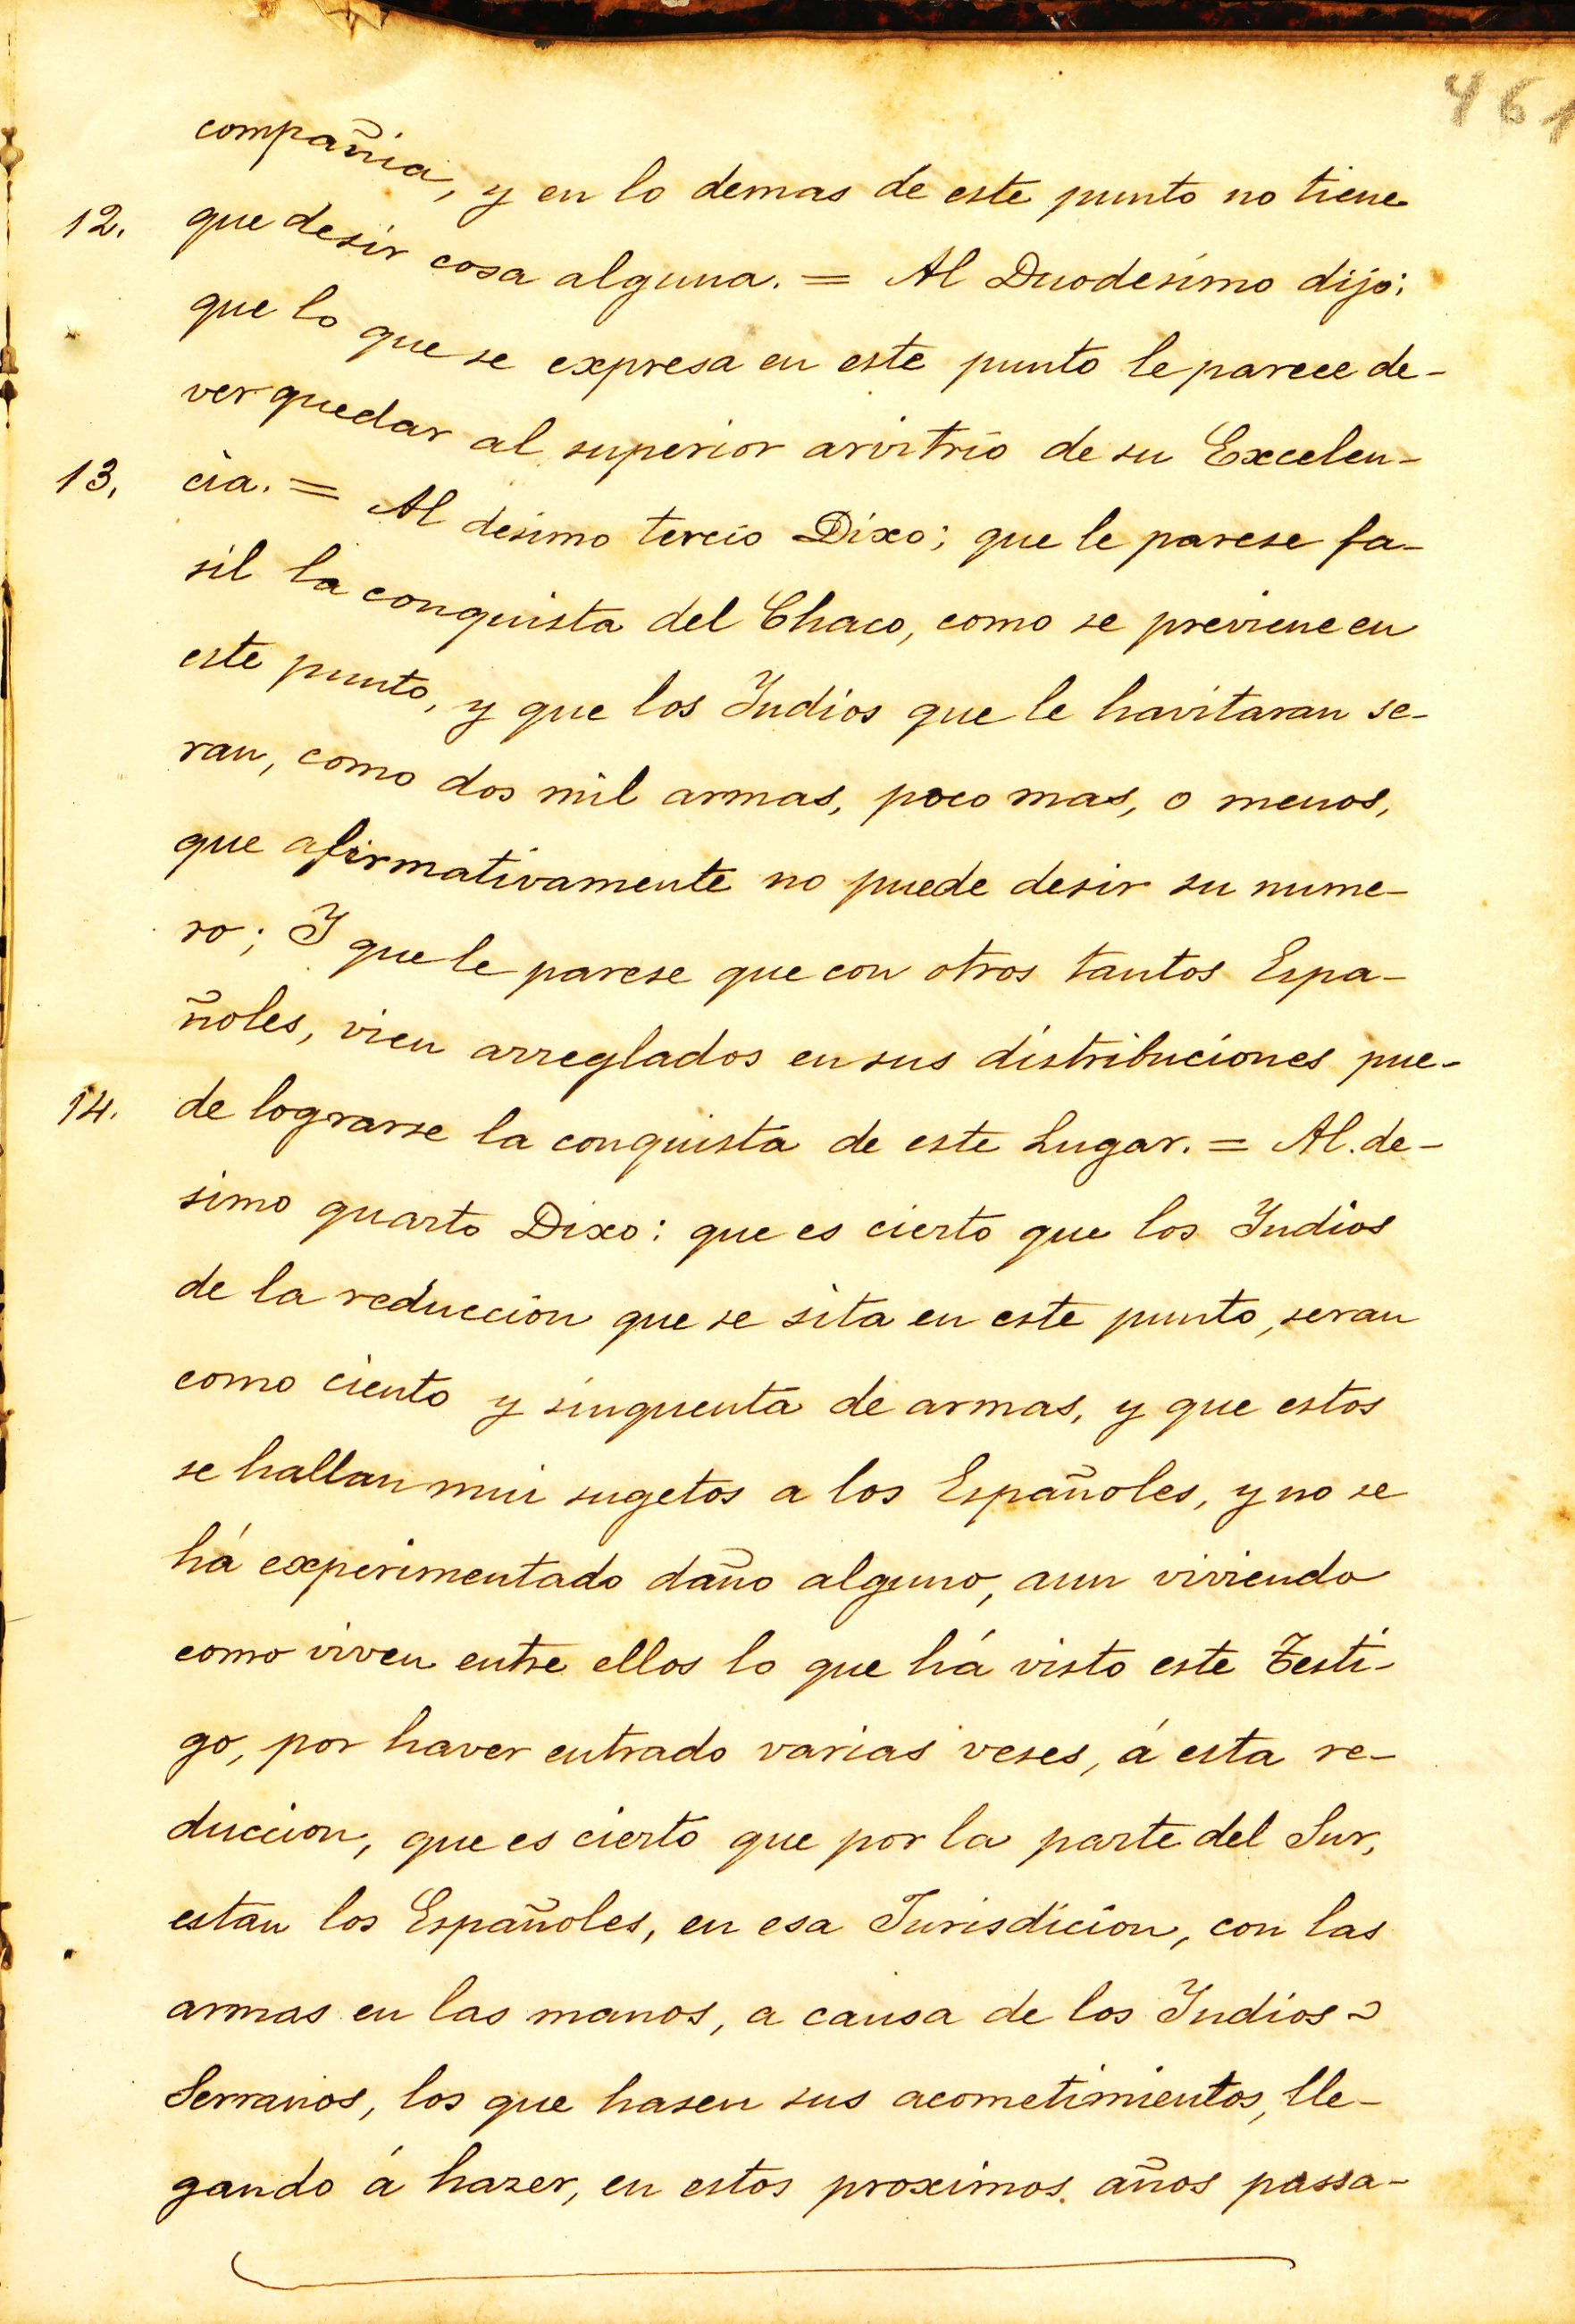 461
compañia, y en lo demas de este punto no tiene
12. que desir cosa alguna. = Al Duodesimo dijo;
que lo que se expresa en este punto le parece de-
ver quedar al superior arvitrio de su Excelen-
13. cia. = Al desimo tercio Dixo; que le parese fa-
sil la conquista del Chaco, como se previene en
este punto, y que los Indios que le havitaran se-
ran, como dos mil armas, poco mas, o menos,
que afirmativamente no puede desir su nume-
ro; I que le parese que con otros tantos Espa-
ñoles, vien arreglados en sus distribuciones pue-
14. de lograrse la conquista de este Lugar. = Al de-
simo quarto Dixo: que es cierto que los Indios
de la reduccion que se sita en este punto, seran
como ciento y sinquenta de armas, y que estos
se hallan mui sugetos a los Españoles, y no se
há experimentado daño alguno, aun viviendo
como viven entre ellos lo que há visto este Testi-
go, por haver entrado varias veses, á esta re-
duccion, que es cierto que por la parte del Sur,
estan los Españoles, en esa Jurisdicion, con las
armas en las manos, a causa de los Indios
Serranos, los que hasen sus acometimientos, lle-
gando á hazer, en estos proximos años passa-